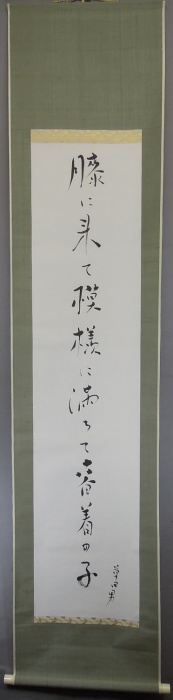 膝に来て模様に満ちて春着の子
草田男